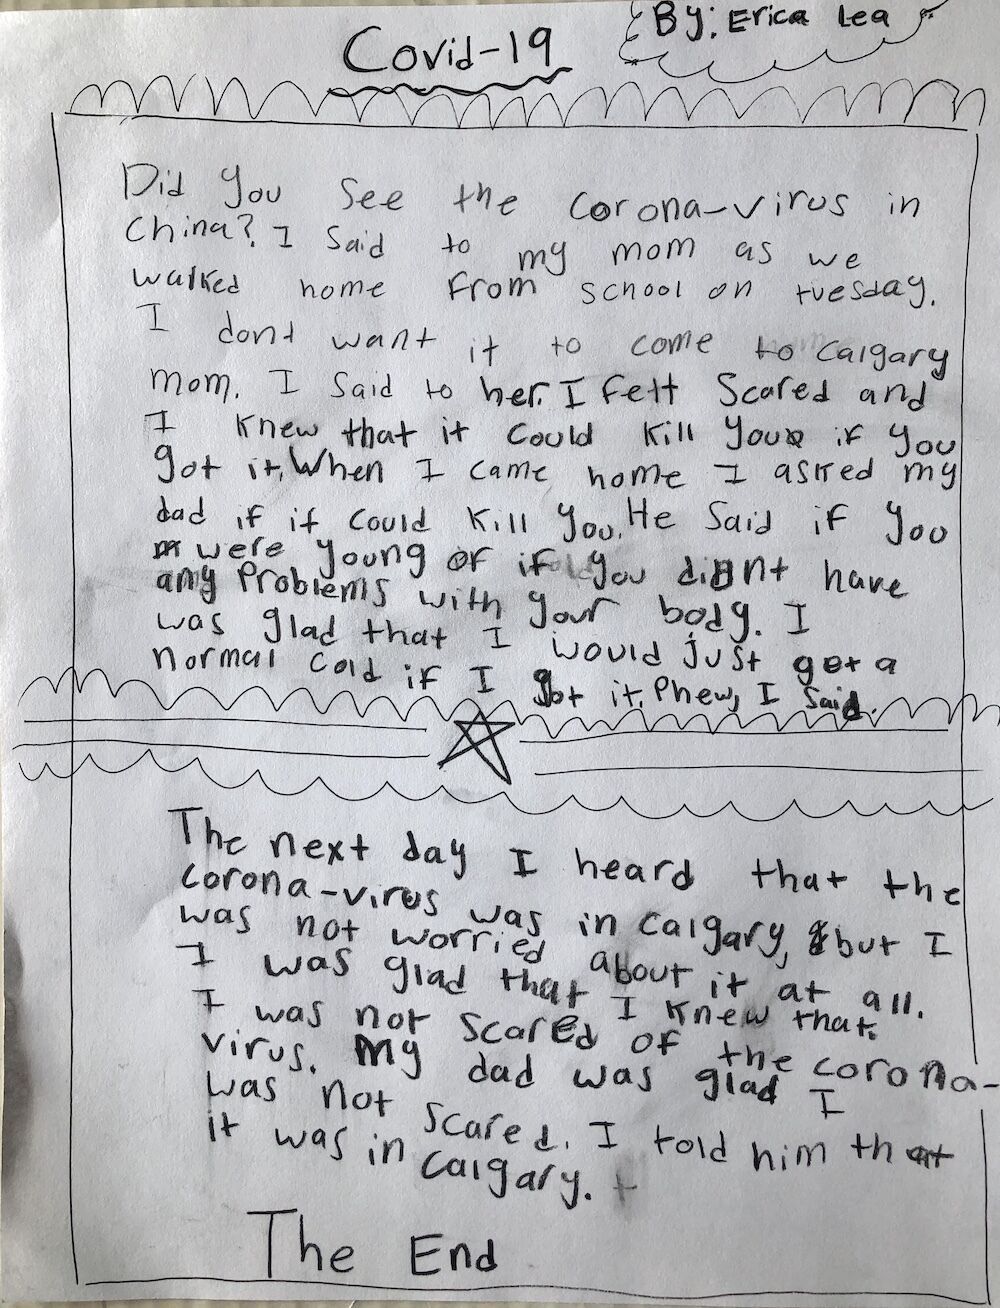 Covid-19
By: Erica Lea
Did you see the corona-virus in
China? I said to my mom as we
walked home from school on tuesday.
I dont want it to come to calgary
mom. I said to her. I felt scared and
I knew that it could kill you if you
got it. When I came home I asked my
dad if it could kill you. He said if you
were young or if you didnt have
any problems with your body. I
was glad that I would just get a
normal cold if I got it. Phew, I said.
The next day I heard that the
corona-virus was in calgary, but I
was not worried about it at all.
I was glad that I knew that.
I was not scared of the corona-
virus. My dad was glad I
was not scared. I told him that
it was in calgary.
The End